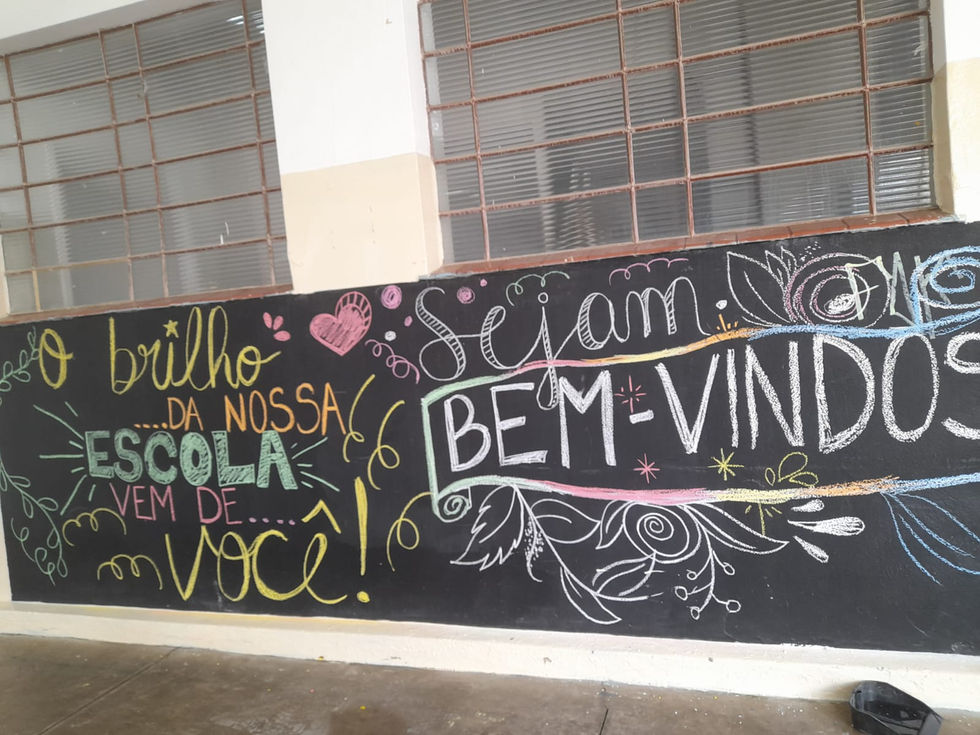 O brilho
....DA NOSSA
ESCOLA
VEM DE.....
você!
Sejam
BEM-VINDOS